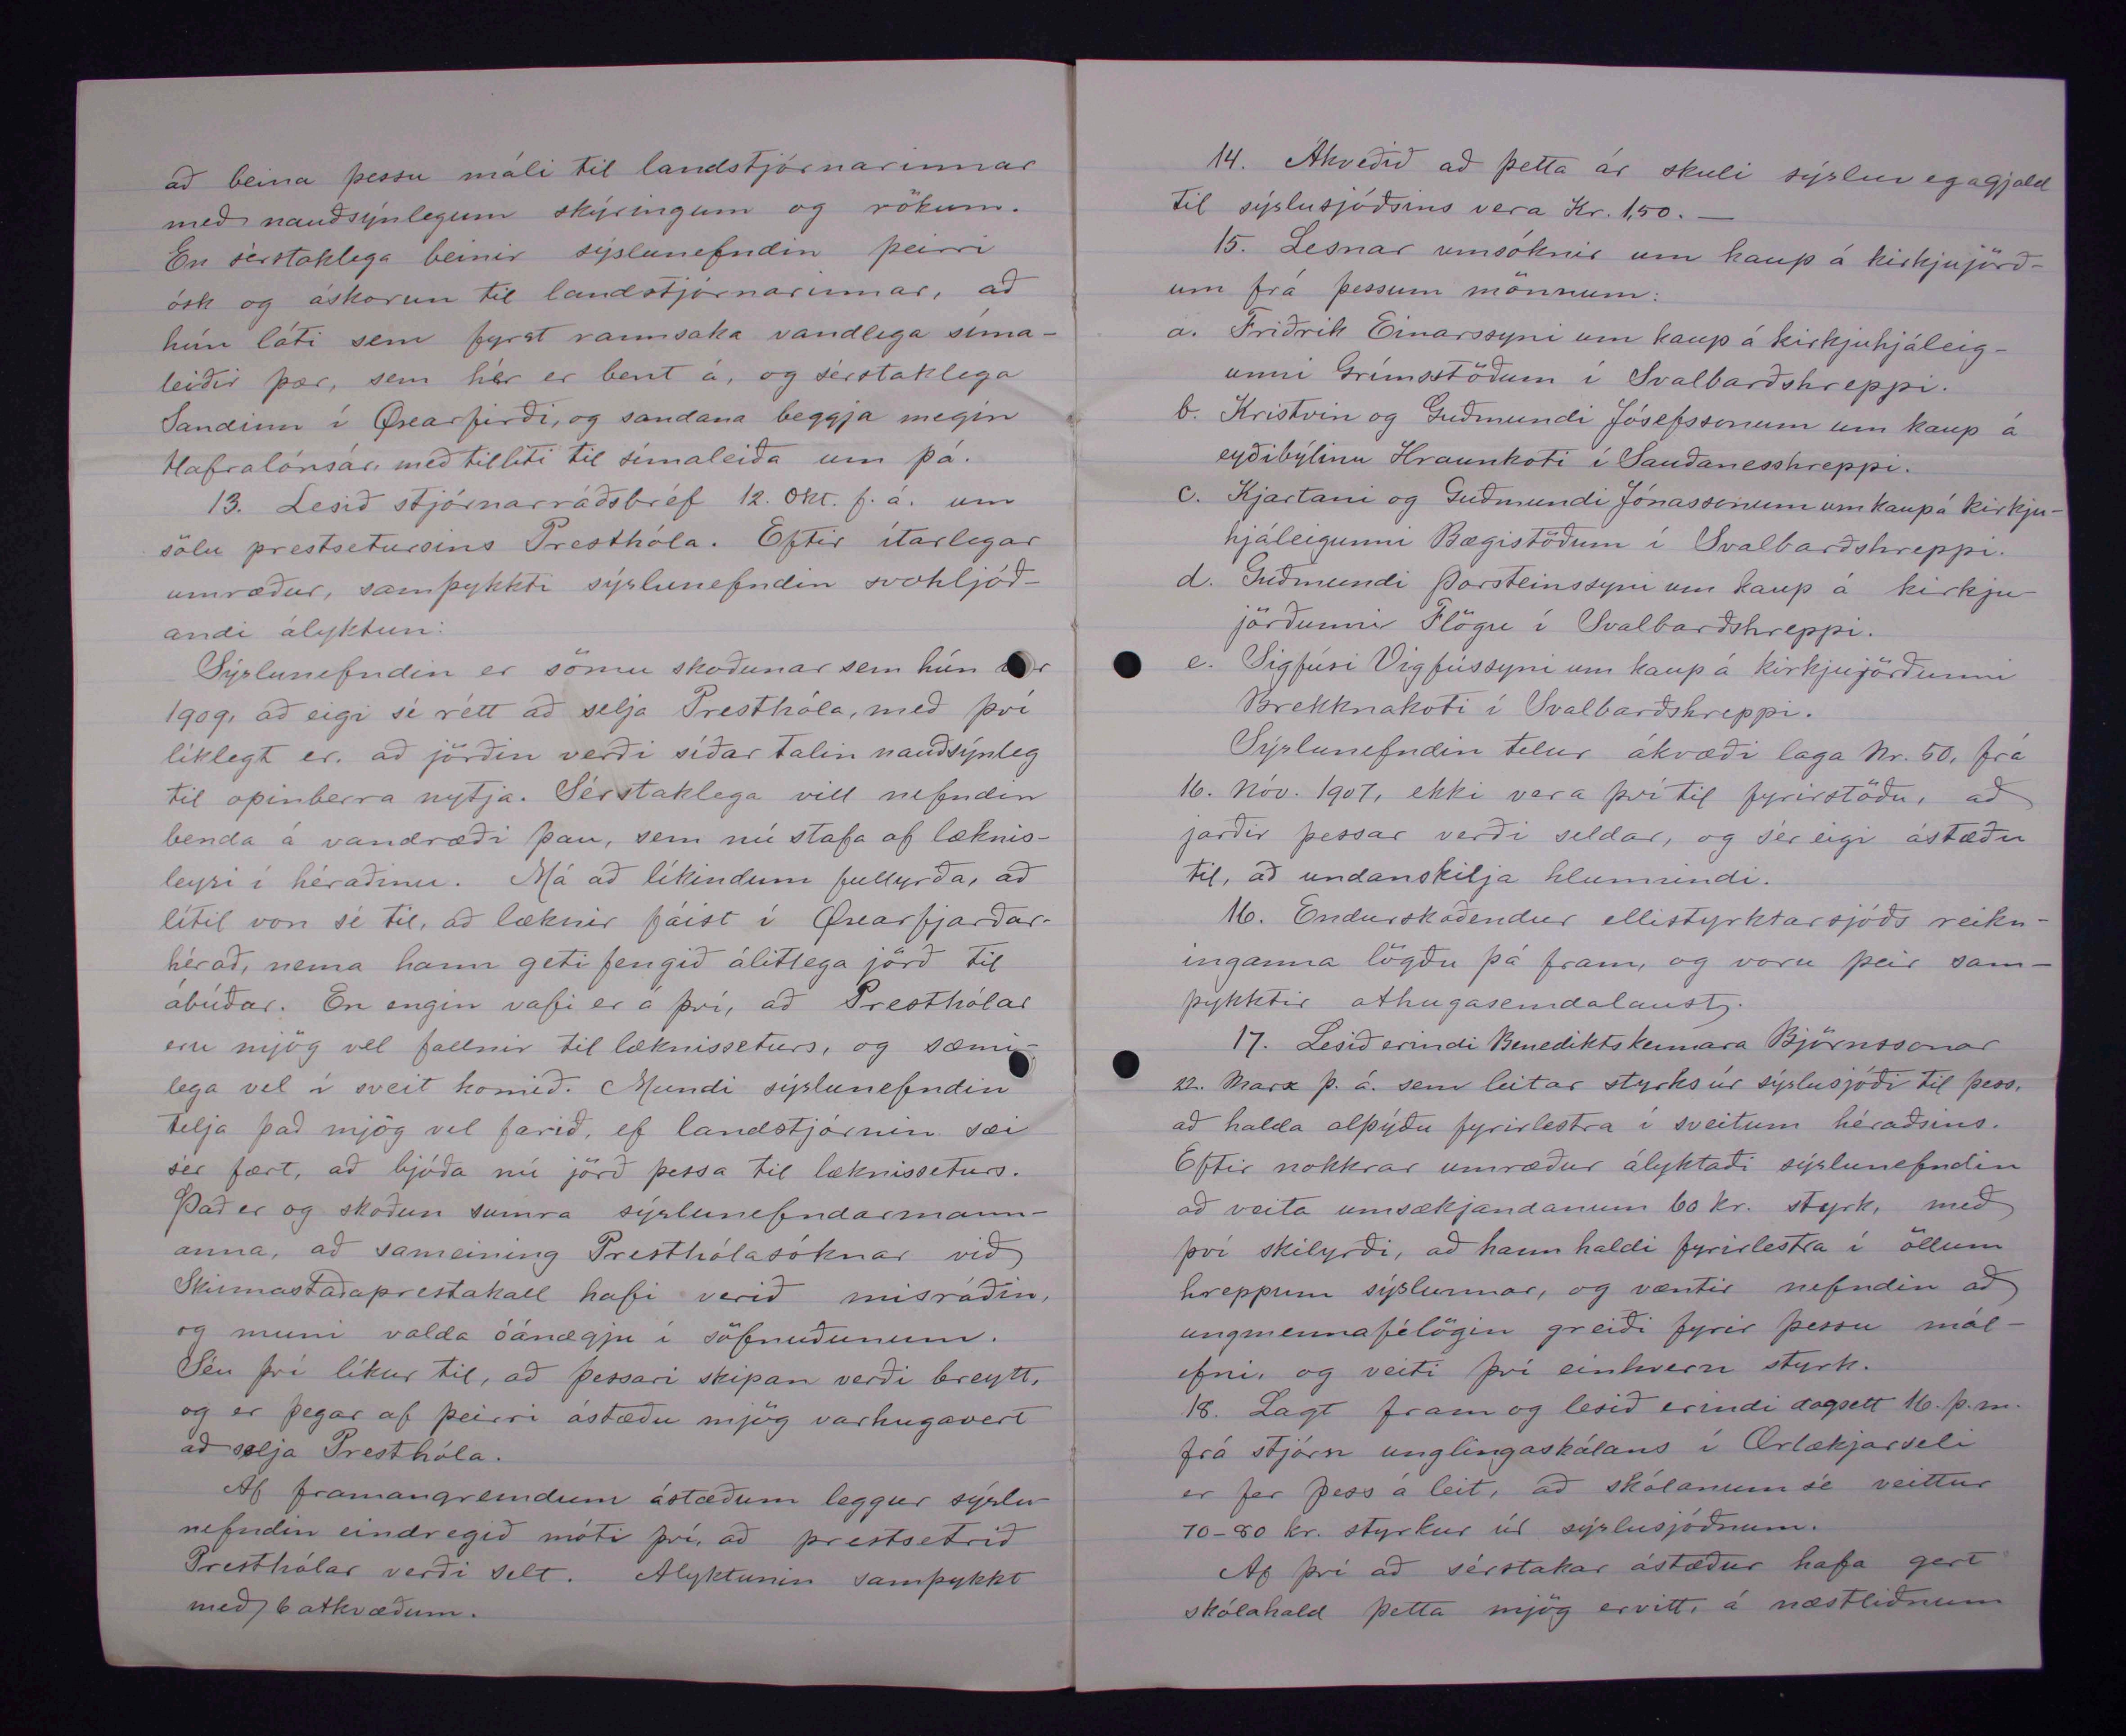 að beina þessu máli til landstjórnarinnar
með nauðsýnlegum skýringum og rökum.
En sérstaklega beinir sýslunefndin þeirri
ósk og áskorun til landstjórnarinnar, að
hún láti sem fyrst rannsaka vandlega síma-
leiðir þær, sem hér er bent á, og sérstaklega
Sandinn í Øxarfirði, og sandana beggja megin
Hafralónsár, með tilliti til símaleiða um þá.
13. Lesið stjórnarráðsbréf 12. Okt. f. á. um
sölu prestsetursins Presthóla. Eftir ítarlegar
umræður, samþykkti sýslunefndin svohljóð-
andi ályktun:
Sýslunefndin er sömu skoðunar sem hún var
1909, að eigi sé rétt að selja Presthóla, með því
líklegt er, að jörðin verði síðar talin nauðsýnleg
til opinberra nytja. Sérstaklega vill nefndin
benda á vandræði þau, sem nú stafa af læknis-
leysi í héraðinu. Má að líkindum fullyrða, að
lítil von sé til, að læknir fáist í Øxarfjarðar-
hérað, nema hann geti fengið álitlega jörð til
ábúðar. En engin vafi er á því, að Presthólar
eru mjög vel fallnir til læknisseturs, og sæmi-
lega vel í sveit komið. Mundi sýslunefndin
telja það mjög vel farið, ef landstjórnin sæi
sér fært, að bjóða nú jörð þessa til læknisseturs.
Það er og skoðun sumra sýslunefndarmann-
anna, að sameining Presthólasóknar við
Skinnastaðaprestakall hafi verið misráðin,
og muni valda óánægju í söfnuðunum.
Séu því líkur til, að þessari skipan verði breytt,
og er þegar af þeirri ástæðu mjög varhugavert
að selja Presthóla.
Af framangreindum ástæðum leggur sýslu-
nefndin eindregið móti því, að prestsetrið
Presthólar verði selt. Alyktunin samþykkt
með 6 atkvæðum.
14. Ákveðið að þetta ár skuli sýsluvegagjald
til sýslusjóðsins vera Kr. 1,50. —
15. Lesnar umsóknir um kaup á kirkjujörð-
um frá þessum mönnum:
a. Friðrik Einarssyni um kaup á kirkjuhjáleig-
unni Grímsstöðum í Svalbarðshreppi.
b. Kristvin og Guðmundi Jósefssonum um kaup á
eyðibýlinu Hraunkoti í Sauðanesshreppi.
c. Kjartani og Guðmundi Jónassonum um kaup á kirkju-
hjáleigunni Bægistöðum í Svalbarðshreppi.
d. Guðmundi Þorsteinssyni um kaup á kirkju-
jörðunni Flögu í Svalbarðshreppi.
e. Sigfúsi Vigfússyni um kaup á kirkjujörðunni
Brekknakoti í Svalbarðshreppi.
Sýslunefndin telur ákvæði laga Nr. 50, frá
16. Nóv. 1907, ekki vera því til fyrirstöðu, að
jarðir þessar verði seldar, og sér eigi ástæðu
til, að undanskilja hlunnindi.
16. Endurskoðendur ellistyrktarsjóðs reikn-
inganna lögðu þá fram, og voru þeir sam-
þykktir athugasemdalaust.
17. Lesið erindi Benedikts kennara Björnssonar
22. Marz þ. á. sem leitar styrks úr sýslusjóði til þess,
að halda alþýðu fyrirlestra í sveitum héraðsins.
Eftir nokkrar umræður ályktaði sýslunefndin
að veita umsækjandanum 60 kr. styrk, með
því skilyrði, að hann haldi fyrirlestra í öllum
hreppum sýslunnar, og væntir nefndin að
ungmennafélögin greiði fyrir þessu mál-
efni, og veiti því einhvern styrk.
18. Lagt fram og lesið erindi dagsett 16. þ. m.
frá stjórn unglingaskólans í Ærlækjarseli
er fer þess á leit, að skólanum sé veittur
70-80 kr. styrkur úr sýslusjóðnum.
Af því að sérstakar ástæður hafa gert
skólahald þetta mjög ervitt, á næstliðnum